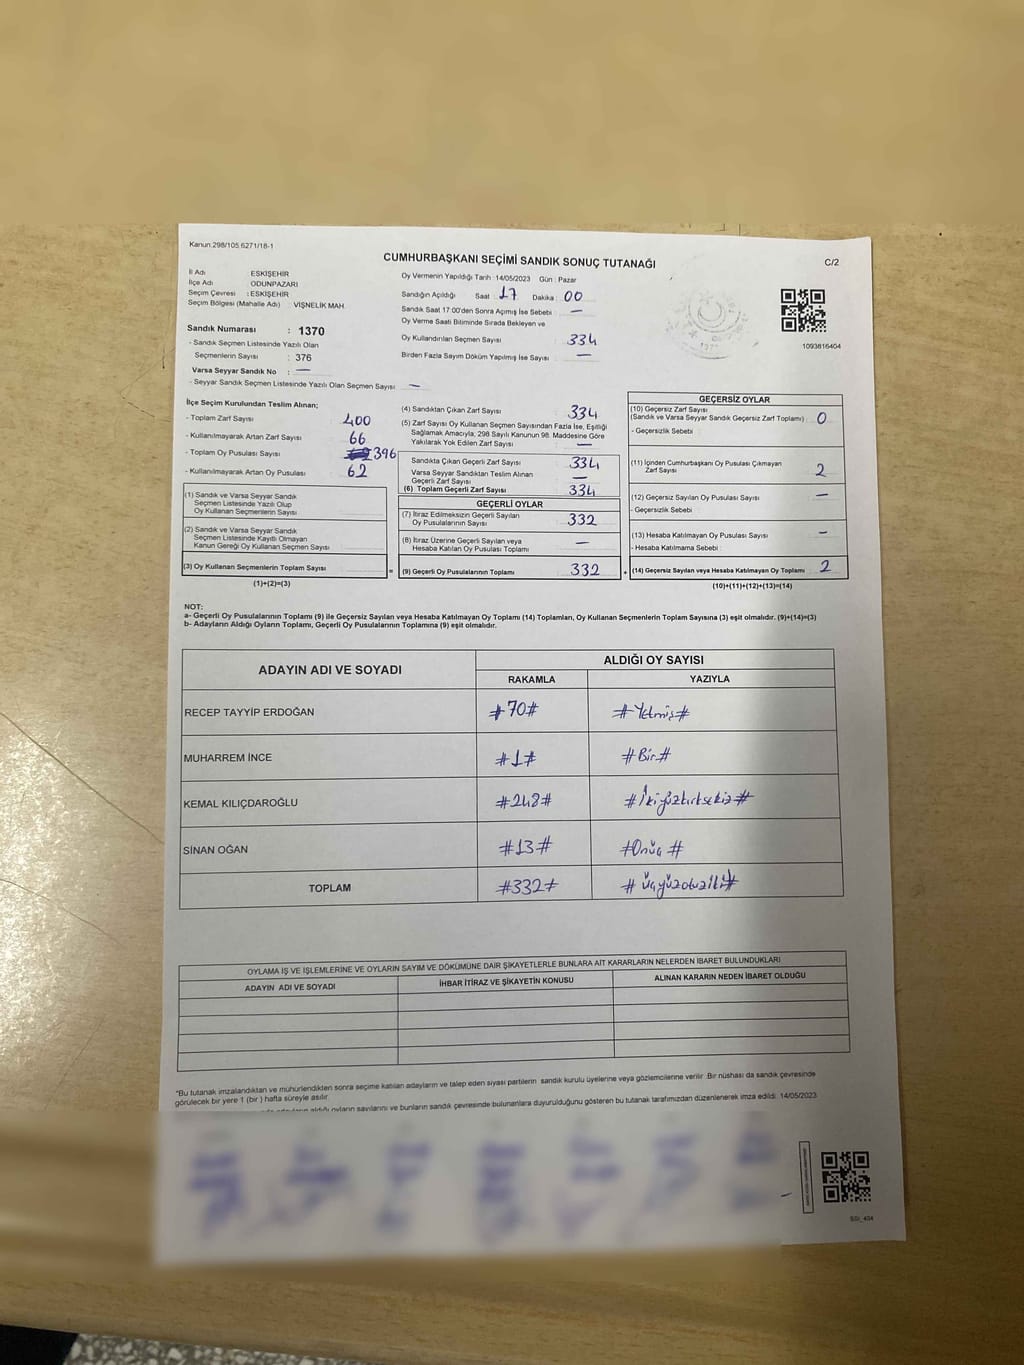 Kanun:298/105,6271/18-1
CUMHURBAŞKANI SEÇİMİ SANDIK SONUÇ TUTANAĞI
C/2
İl Adı : ESKİŞEHİR
İlçe Adı : ODUNPAZARI
Seçim Çevresi : ESKİŞEHİR
Seçim Bölgesi (Mahalle Adı) : VİŞNELİK MAH.
Sandık Numarası : 1370
- Sandık Seçmen Listesinde Yazılı Olan
Seçmenlerin Sayısı : 376
Varsa Seyyar Sandık No : —
- Seyyar Sandık Seçmen Listesinde Yazılı Olan Seçmen Sayısı : —
Oy Vermenin Yapıldığı Tarih : 14/05/2023 Gün : Pazar
Sandığın Açıldığı Saat : 17 Dakika : 00
Sandık Saat 17.00'den Sonra Açımış İse Sebebi : —
Oy Verme Saati Bitiminde Sırada Bekleyen ve
Oy Kullandırılan Seçmen Sayısı : 334
Birden Fazla Sayım Döküm Yapılmış İse Sayısı : —
1093816404
İlçe Seçim Kurulundan Teslim Alınan;
- Toplam Zarf Sayısı 400
- Kullanılmayarak Artan Zarf Sayısı 66
- Toplam Oy Pusulası Sayısı 396
- Kullanılmayarak Artan Oy Pusulası 62
(1) Sandık ve Varsa Seyyar Sandık
Seçmen Listesinde Yazılı Olup
Oy Kullanan Seçmenlerin Sayısı
(2) Sandık ve Varsa Seyyar Sandık
Seçmen Listesinde Kayıtlı Olmayan
Kanun Gereği Oy Kullanan Seçmen Sayısı
(3) Oy Kullanan Seçmenlerin Toplam Sayısı
(1)+(2)=(3)
(4) Sandıktan Çıkan Zarf Sayısı 334
(5) Zarf Sayısı Oy Kullanan Seçmen Sayısından Fazla İse, Eşitliği
Sağlamak Amacıyla, 298 Sayılı Kanunun 98. Maddesine Göre
Yakılarak Yok Edilen Zarf Sayısı —
Sandıkta Çıkan Geçerli Zarf Sayısı 334
Varsa Seyyar Sandıktan Teslim Alınan
Geçerli Zarf Sayısı —
(6) Toplam Geçerli Zarf Sayısı 334
GEÇERLİ OYLAR
(7) İtiraz Edilmeksizin Geçerli Sayılan
Oy Pusulalarının Sayısı 332
(8) İtiraz Üzerine Geçerli Sayılan veya
Hesaba Katılan Oy Pusulası Toplamı —
= (9) Geçerli Oy Pusulalarının Toplamı 332 +
GEÇERSİZ OYLAR
(10) Geçersiz Zarf Sayısı
(Sandık ve Varsa Seyyar Sandık Geçersiz Zarf Toplamı) : 0
- Geçersizlik Sebebi :
(11) İçinden Cumhurbaşkanı Oy Pusulası Çıkmayan
Zarf Sayısı 2
(12) Geçersiz Sayılan Oy Pusulası Sayısı —
- Geçersizlik Sebebi :
(13) Hesaba Katılmayan Oy Pusulası Sayısı —
- Hesaba Katılmama Sebebi :
(14) Geçersiz Sayılan veya Hesaba Katılmayan Oy Toplamı 2
(10)+(11)+(12)+(13)=(14)
NOT:
a- Geçerli Oy Pusulalarının Toplamı (9) ile Geçersiz Sayılan veya Hesaba Katılmayan Oy Toplamı (14) Toplamları, Oy Kullanan Seçmenlerin Toplam Sayısına (3) eşit olmalıdır. (9)+(14)=(3)
b- Adayların Aldığı Oyların Toplamı, Geçerli Oy Pusulalarının Toplamına (9) eşit olmalıdır.
ADAYIN ADI VE SOYADI
ALDIĞI OY SAYISI
RAKAMLA YAZIYLA
RECEP TAYYİP ERDOĞAN #70# #Yetmiş#
MUHARREM İNCE #1# #Bir#
KEMAL KILIÇDAROĞLU #248# #İkiyüzkırksekiz#
SİNAN OĞAN #13# #Onüç#
TOPLAM #332# #Üçyüzotuziki#
OYLAMA İŞ VE İŞLEMLERİNE VE OYLARIN SAYIM VE DÖKÜMÜNE DAİR ŞİKAYETLERLE BUNLARA AİT KARARLARIN NELERDEN İBARET BULUNDUKLARI
ADAYIN ADI VE SOYADI İHBAR İTİRAZ VE ŞİKAYETİN KONUSU ALINAN KARARIN NEDEN İBARET OLDUĞU
"Bu tutanak imzalandıktan ve mühürlendikten sonra seçime katılan adayların ve talep eden siyasi partilerin sandık kurulu üyelerine veya gözlemcilerine verilir. Bir nüshası da sandık çevresinde
görülecek bir yere 1 (bir ) hafta süreyle asılır.
aldığı oyların sayılarını ve bunların sandık çevresinde bulunanlara duyurulduğunu gösteren bu tutanak tarafımızdan düzenlenerek imza edildi. 14/05/2023
SSI_404